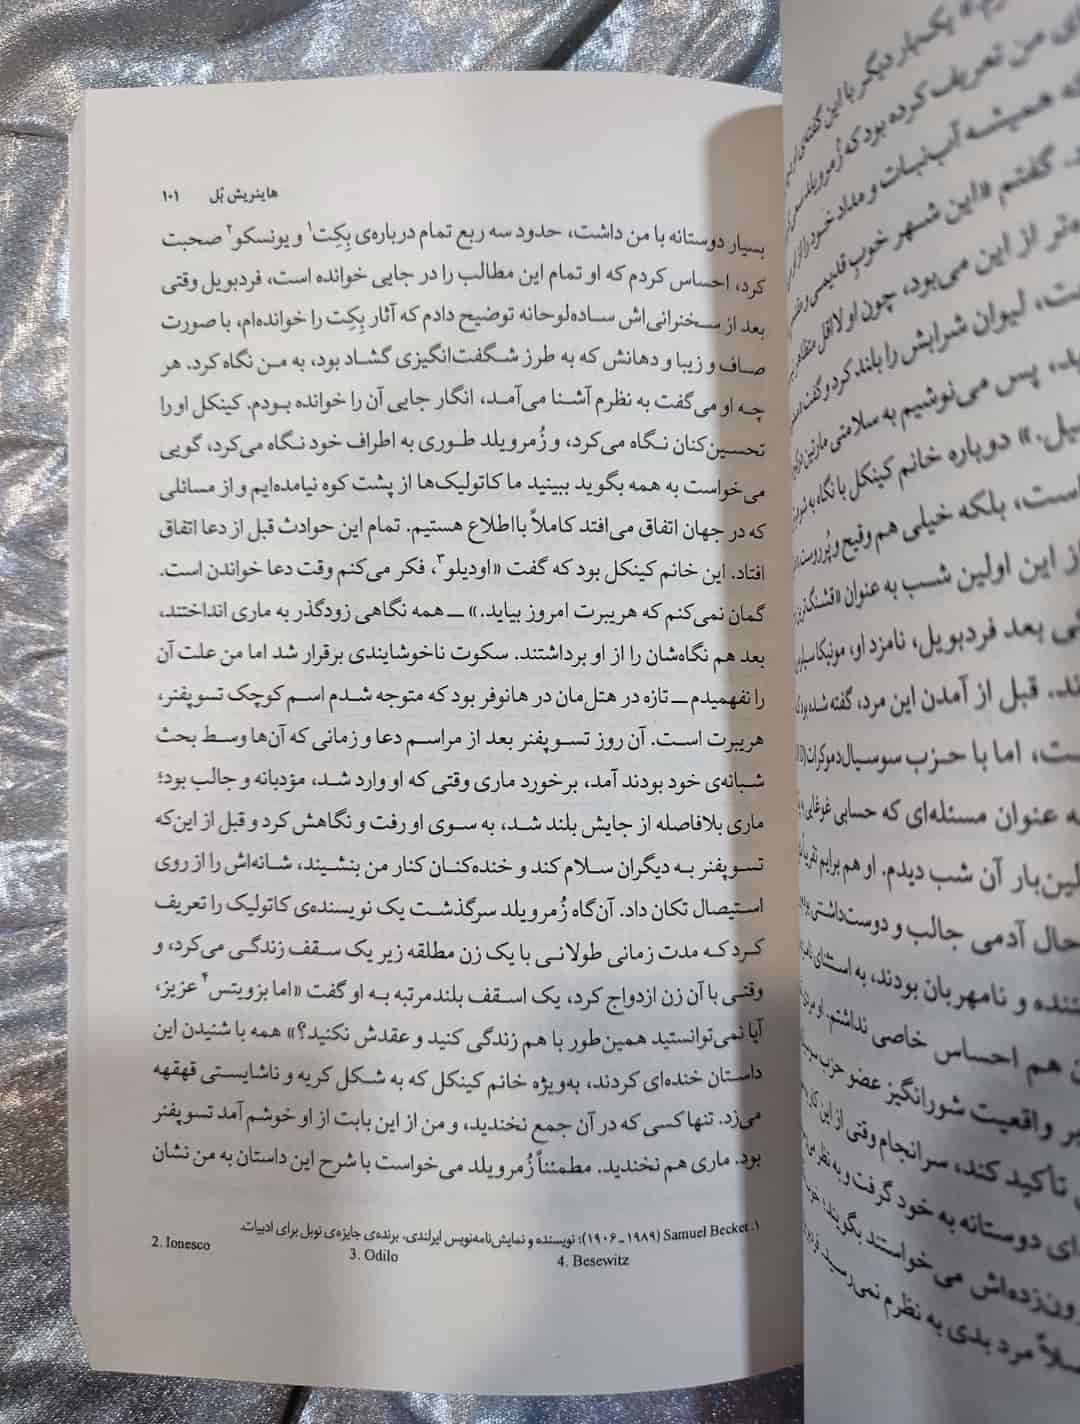 هاینریش بُل ۱۰۱
بسیار دوستانه با من داشت، حدود سه ربع تمام درباره‌ی بِکِت۱ و یونسکو۲ صحبت
کرد، احساس کردم که او تمام این مطالب را در جایی خوانده است، فردبویل وقتی
بعد از سخنرانی‌اش ساده‌لوحانه توضیح دادم که آثار بِکِت را خوانده‌ام، با صورت
صاف و زیبا و دهانش که به طرز شگفت‌انگیزی گشاد بود، به من نگاه کرد. هر
چه او می‌گفت به نظرم آشنا می‌آمد، انگار جایی آن را خوانده بودم. کینکل او را
تحسین‌کنان نگاه می‌کرد، و زُمرویلد طوری به اطراف خود نگاه می‌کرد، گویی
می‌خواست به همه بگوید ببینید ما کاتولیک‌ها از پشت کوه نیامده‌ایم و از مسائلی
که در جهان اتفاق می‌افتد کاملاً بااطلاع هستیم. تمام این حوادث قبل از دعا اتفاق
افتاد. این خانم کینکل بود که گفت «اودیلو۳، فکر می‌کنم وقت دعا خواندن است.
گمان نمی‌کنم که هریبرت امروز بیاید.» ــ همه نگاهی زودگذر به ماری انداختند،
بعد هم نگاه‌شان را از او برداشتند. سکوت ناخوشایندی برقرار شد اما من علت آن
را نفهمیدم ــ تازه در هتل‌مان در هانوفر بود که متوجه شدم اسم کوچک تسوپفنر،
هریبرت است. آن روز تسوپفنر بعد از مراسم دعا و زمانی که آن‌ها وسط بحث
شبانه‌ی خود بودند آمد، برخورد ماری وقتی که او وارد شد، مؤدبانه و جالب بود؛
ماری بلافاصله از جایش بلند شد، به سوی او رفت و نگاهش کرد و قبل از این‌که
تسوپفنر به دیگران سلام کند و خنده‌کنان کنار من بنشیند، شانه‌اش را از روی
استیصال تکان داد. آن‌گاه زُمرویلد سرگذشت یک نویسنده‌ی کاتولیک را تعریف
کرد که مدت زمانی طولانی با یک زن مطلقه زیر یک سقف زندگی می‌کرد، و
وقتی با آن زن ازدواج کرد، یک اسقف بلندمرتبه به او گفت «اما بزویتس۴ عزیز،
آیا نمی‌توانستید همین‌طور با هم زندگی کنید و عقدش نکنید؟» همه با شنیدن این
داستان خنده‌ای کردند، به‌ویژه خانم کینکل که به شکل کریه و ناشایستی قهقهه
می‌زد. تنها کسی که در آن جمع نخندید، و من از این بابت از او خوشم آمد تسوپفنر
بود. ماری هم نخندید. مطمئناً زُمرویلد می‌خواست با شرح این داستان به من نشان
۱. Samuel Becket (۱۹۸۹ـ۱۹۰۶): نویسنده و نمایش‌نامه‌نویس ایرلندی، برنده‌ی جایزه‌ی نوبل برای ادبیات.
2. Ionesco 3. Odilo 4. Besewitz
یک‌بار دیگر با این گفته‌ی
من تعریف کرده بود که زُمرویلد
که همیشه آب‌نبات و مداد خود را از
گفتم «این شهر خوبِ قدیسی
از این می‌بود، چون او لااقل
لیوان شرابش را بلند کرد و گفت
پس می‌نوشیم به سلامتی مارتین
دوباره خانم کینکل با نگاه به
است، بلکه خیلی هم وقیح و پُررو
از این اولین شب به عنوان
بعد فردبویل، نامزد او، مونیکا
قبل از آمدن این مرد، گفته شده بود
اما با حزب سوسیال‌دموکرات
به عنوان مسئله‌ای که حسابی غوغایی
آن شب دیدم. او هم برایم
حال آدمی جالب و دوست‌داشتی
و نامهربان بودند، به استثنای
هم احساس خاصی نداشتم، او
بر واقعیت شورانگیز عضو حزب
تأکید کند، سرانجام وقتی از این کار
دوستانه به خود گرفت و به نظر
می‌خواستند بگویند؛ خوب
مرد بدی به نظرم نمی‌رسید.